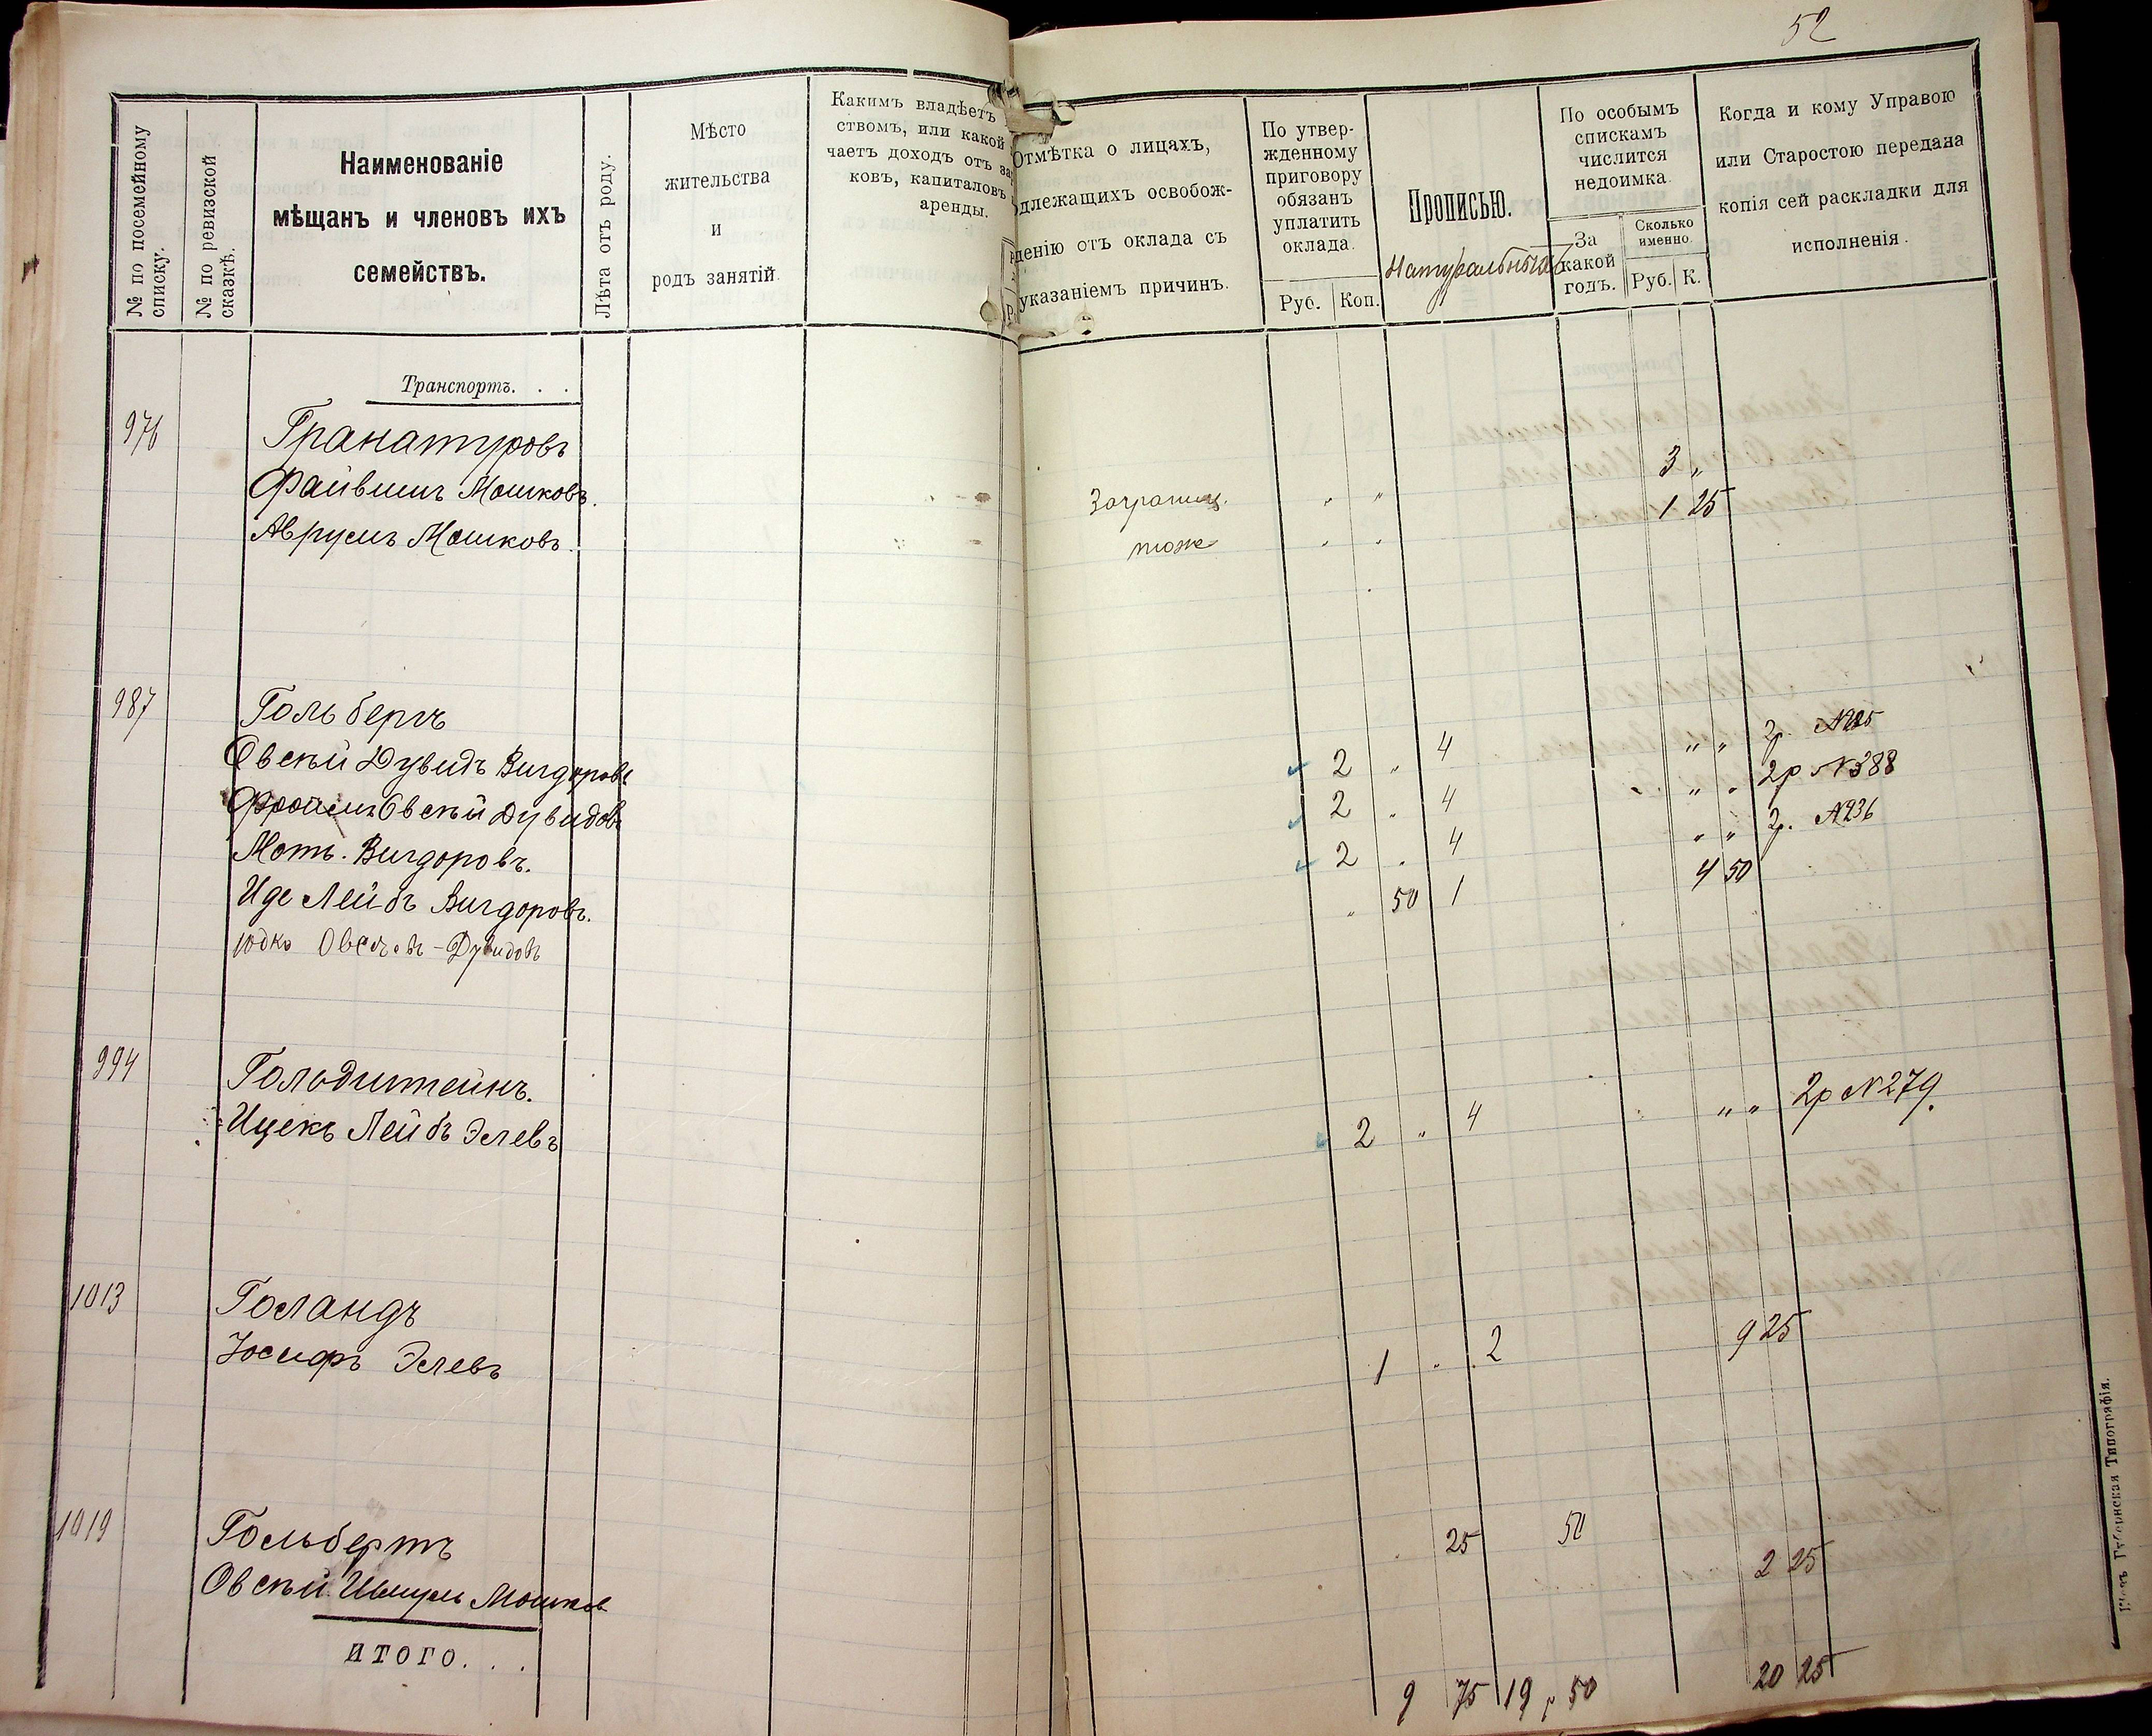 52
№ по посемейному списку.
№ по ревизской сказкѣ.
Наименованіе
мѣщанъ и членовъ ихъ
семействъ.
Лѣта отъ роду.
Мѣсто
жительства
и
родъ занятій.
Какимъ владѣетъ
ствомъ, или какой
чаетъ доходъ отъ
ковъ, капиталовъ
аренды.
Отмѣтка о лицахъ,
длежащихъ освобож-
денію отъ оклада съ
указаніемъ причинъ.
По утвер-
жденному
приговору
обязанъ
уплатить
оклада.
Руб. Коп.
Прописью.
По особымъ
спискамъ
числится
недоимка.
За
какой
годъ.
Сколько
именно.
Руб. К.
Когда и кому Управою
или Старостою передана
копія сей раскладки для
исполненія.
Транспортъ. . .
976 Гранатуровъ
3 "
Файвишъ Мошковъ. Заграниц. " " 1 25
Аврумъ Мошковъ. тоже " "
987 Гольбергъ
Овсѣй Дувидъ Вигдоровъ 2 " 4 " " 2р. №
Фроимъ Овсѣй Дувидовъ 2 " 4 " " 2р №388
Мот. Вигдоровъ. 2 " 4 " " 2р. №236
Иде Лейбъ Вигдоровъ. " 50 1 4 50
Юдко Овсѣевъ-Дувидовъ
994 Гольдштейнъ.
Ицекъ Лейбъ Элевъ 2 " 4 " " 2р №279.
1013 Голандъ
Іосифъ Элевъ 1 " 2 9 25
1019 Гольбертъ
25 50
Овсѣй Шмулъ Мошков 2 25
ИТОГО. . .
9 75 19 р 50 20 25
Губернская Типографія.